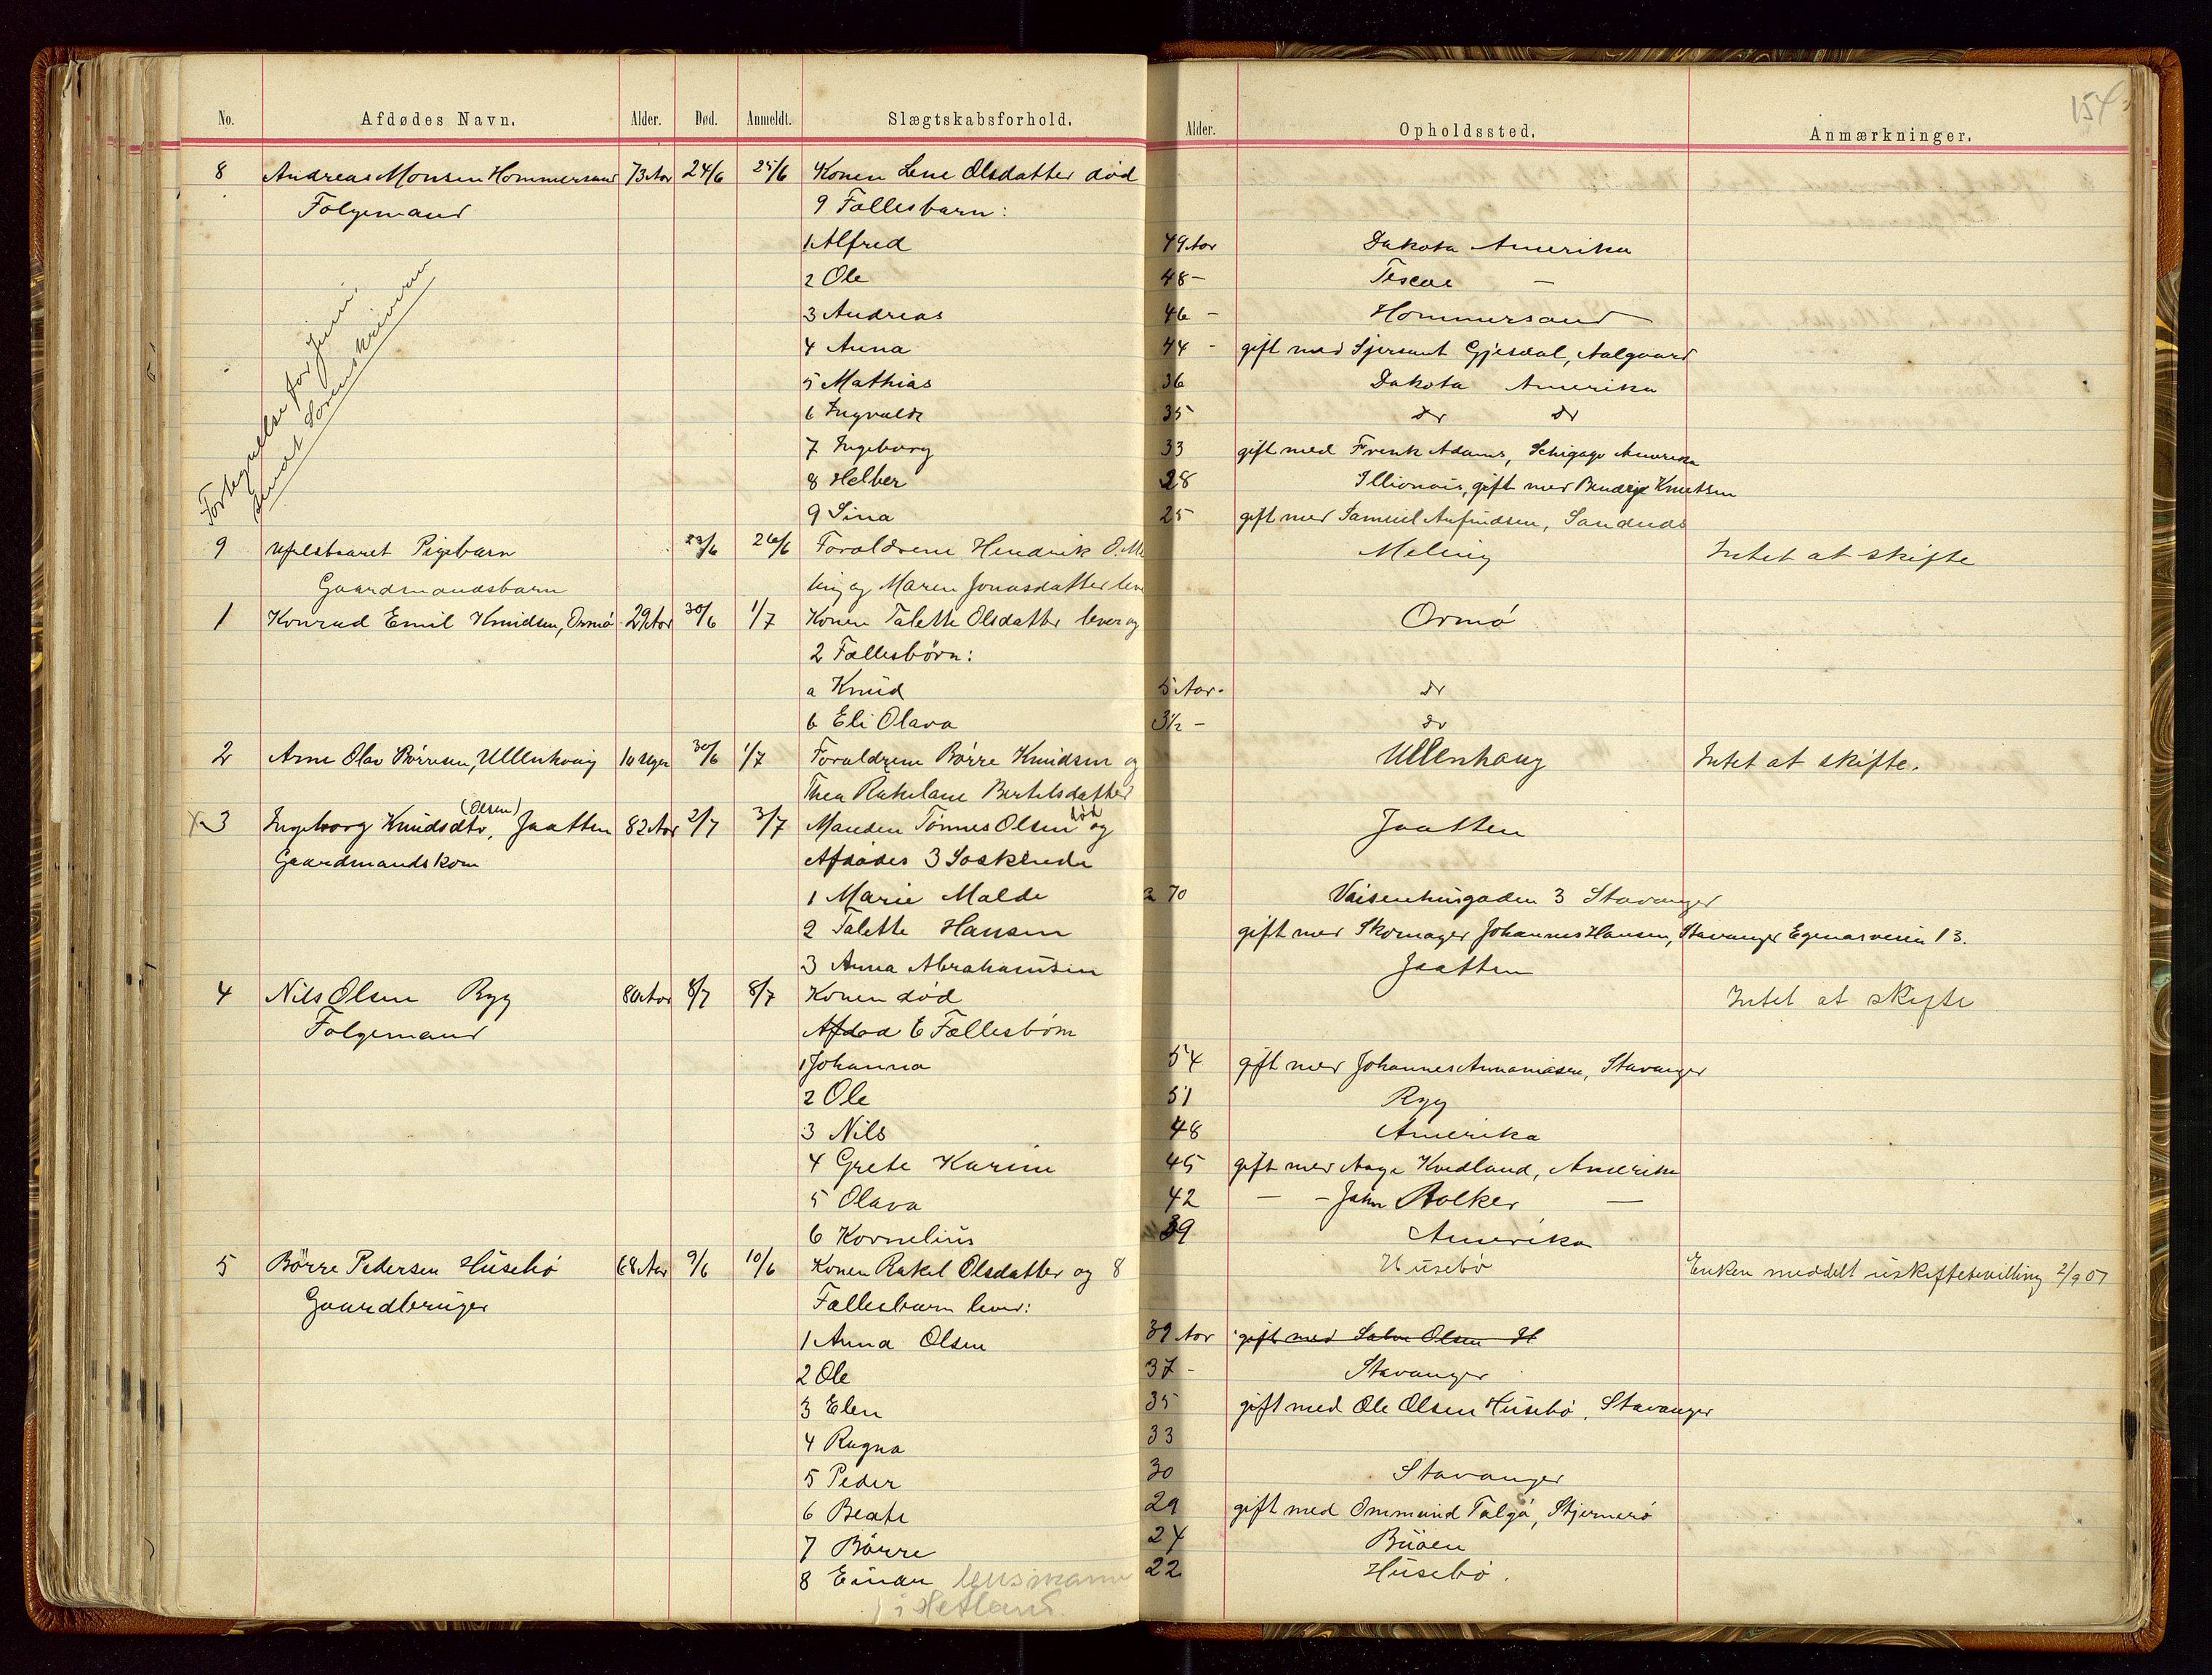 154
No. Afdødes Navn. Alder. Død. Anmeldt. Slægtskabsforhold. Alder. Opholdssted. Anmærkninger.
8 Andreas Monsen Hommersand 73 Aar 24/6 25/6 Konen Lene Olsdatter død
Folgemand 9 Fællesbarn:
1 Alfred 49 Aar Dakota Amerika
2 Ole 48 -
3 Andreas 46 - Hommersand
4 Anna 44 - gift med Gjesdal, Aalgaard
5 Mathias 36 Dakota Amerika
6 Ingvald 35 do do
7 Ingeborg 33 gift med Frenk Adams, Schigago Amerika
8 Helber 28 Illionois, gift med Knutsen
9 Sina 25 gift med Samuel Anfindsen, Sandnes
Fortegnelse for Juni,
sendt Sorenskriveren
9 Pigebarn 23/6 26/6 Forældrene Hendrik O. Me Meling Intet at skifte
Gaardmandsbarn ling og Maren Jonasdatter leve
1 Konrad Emil Knudsen, Ormø 29 Aar 30/6 1/7 Konen Talette Olsdatter lever og Ormø
2 Fællesbörn:
a Knud 5 Aar. do
b Eli Olava 3½ - do
2 Arne Olav Börresen, Ullenhaug 10 Uger 30/6 1/7 Forældrene Börre Knudsen og Ullenhaug Intet at skifte.
Thea Rakelane Bertelsdatter
3 Ingeborg Knudsdtr, (Olsen) Jaatten 82 Aar 2/7 3/7 Manden Tønnes Olsen død og Jaatten
Gaardmandskone Afdødes 3 Søskende
1 Marie Malde 70 Vaisenhusgaden 3 Stavanger
2 Talette Hansen gift med Skomager Johannes Hansen, Stavanger Egenæsveien 13.
3 Anna Abrahamsen Jaatten
4 Nils Olsen Ryg 80 Aar 8/7 8/7 Konen død Intet at skifte
Folgemand Afdød 6 Fællesbörn
1 Johanna 54 gift med Johannes Annaniasen, Stavanger
2 Ole 51 Ryg
3 Nils 48 Amerika
4 Grete Karine 45 gift med Aage Kvedland, Amerika
5 Olava 42 - - John Bolker -
6 Kornelius 39 Amerika
5 Börre Pedersen Husebø 68 Aar 9/6 10/6 Konen Rakel Olsdatter og 8 Husebø Enken meddelt uskiftebevilling 2/9 07
Gaardbruger Fællesbarn lever:
1 Anna Olsen 39 Aar gift med Salve Olsen H
2 Ole 37 - Stavanger
3 Elen 35 gift med Ole Olsen Husebø, Stavanger
4 Ragna 33
5 Peder 30 Stavanger
6 Beate 29 gift med Ommund Talgø, Stjernerø
7 Börre 24 Buøen
8 Einar lensmann 22 Husebø.
i Hetland